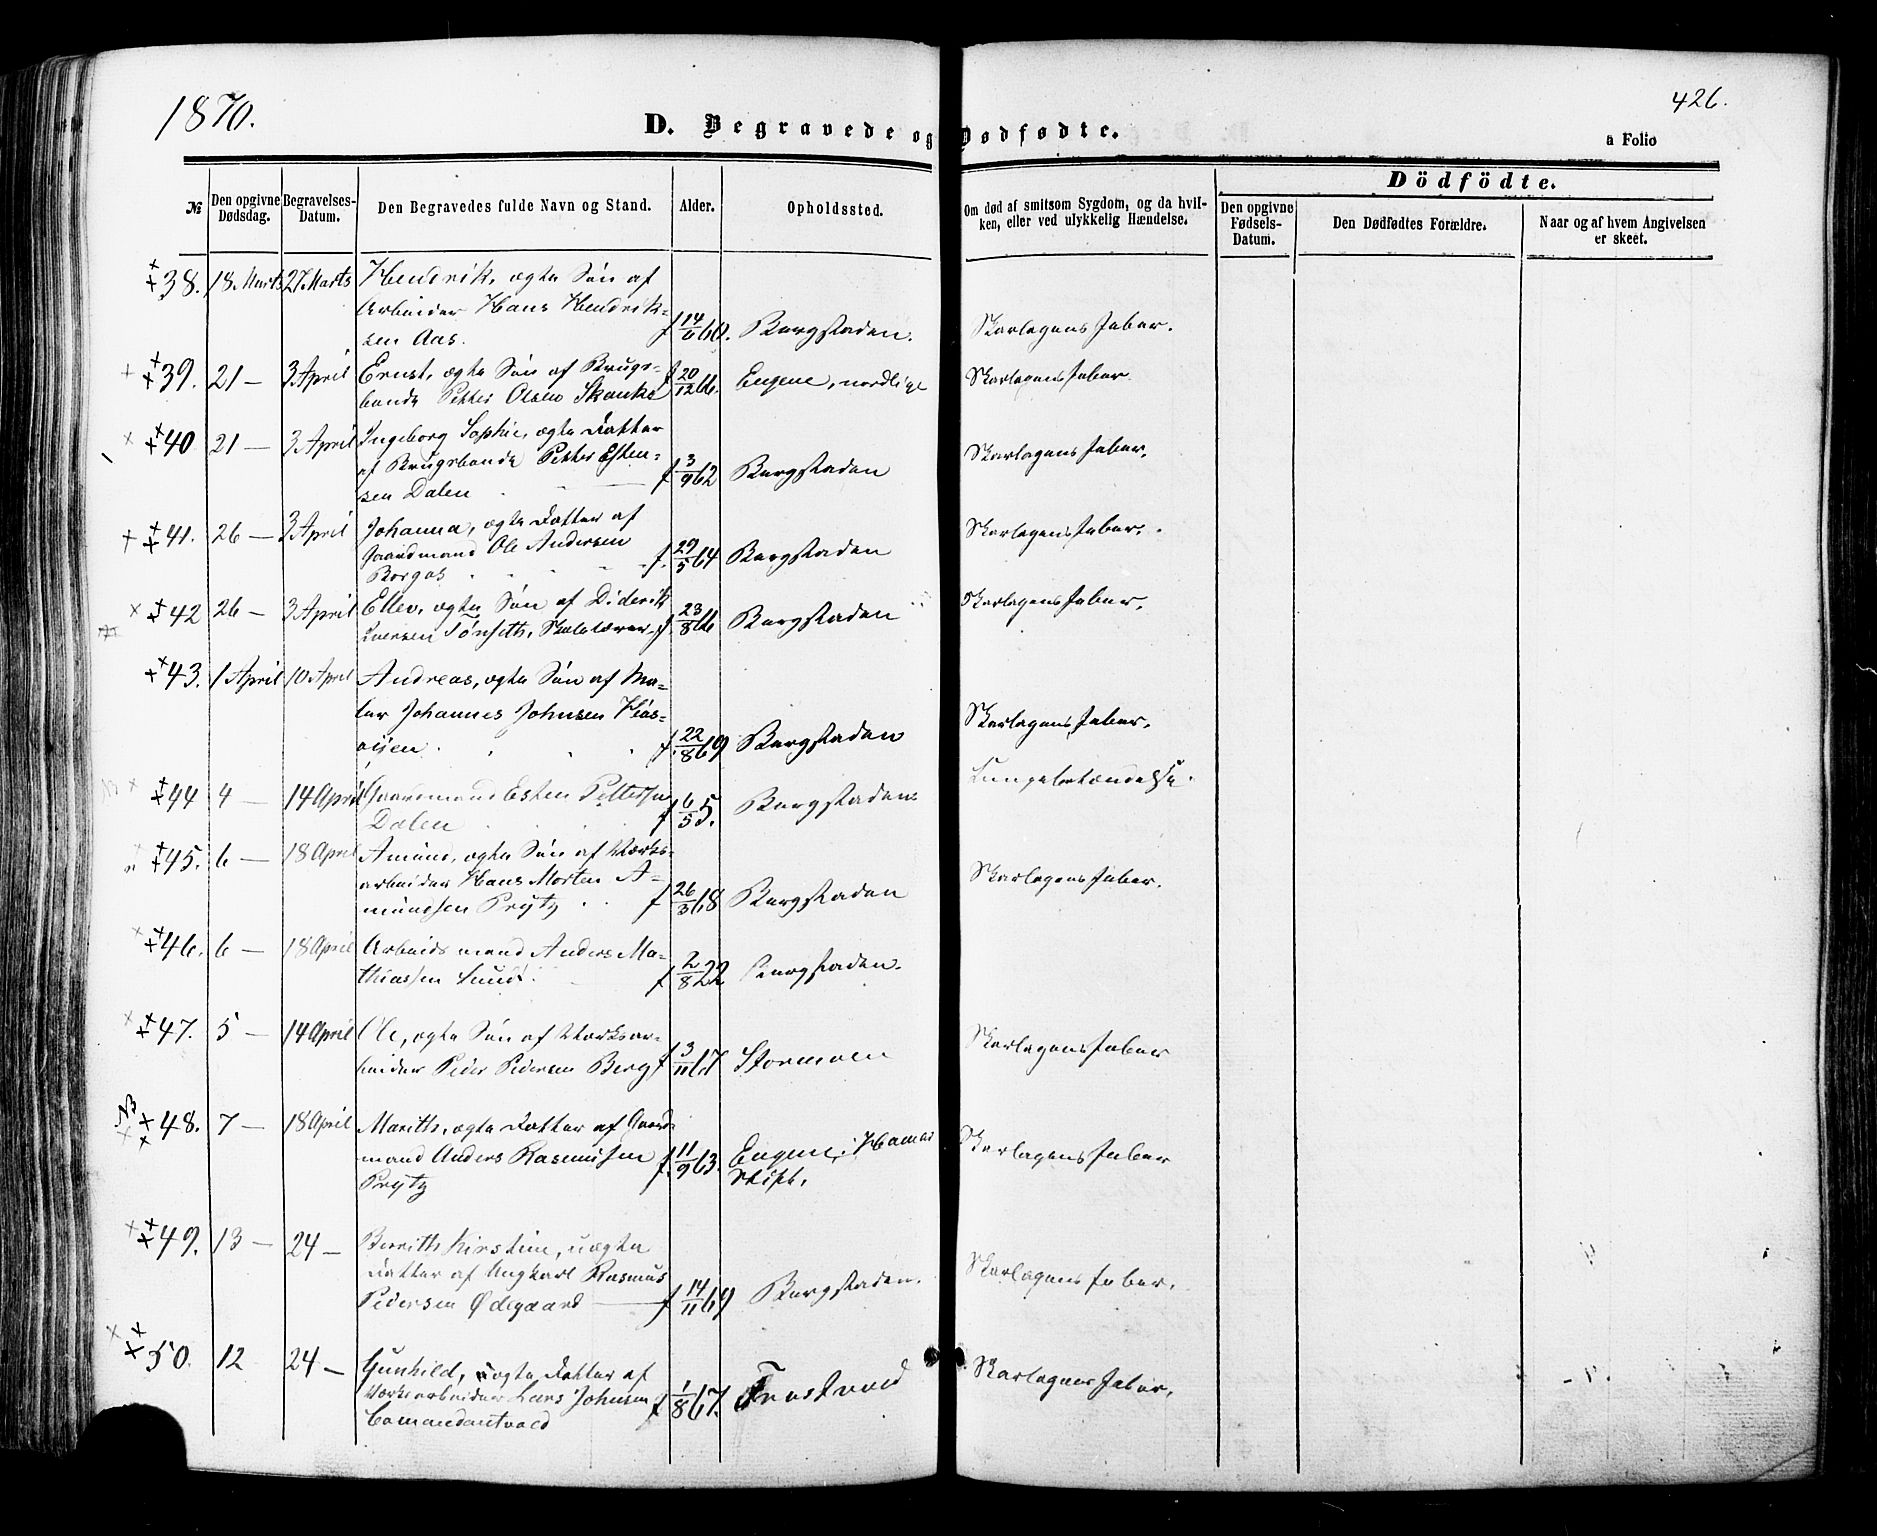 1870.
426.
D. Begravede og Dødfødte.
a Folio
№
Den opgivne Dødsdag.
Begravelses-Datum.
Den Begravedes fulde Navn og Stand.
Alder.
Opholdssted.
Om død af smitsom Sygdom, og da hvilken, eller ved ulykkelig Hændelse.
Dödfödte.
Den opgivne Fødsels-Datum.
Den Dødfødtes Forældre.
Naar og af hvem Angivelsen er skeet.
38. 18 Marts 27 Marts Hendrik, ægte Søn af
Arbeider Hans Hendrik-
sen Aas. f 14/ 60. Bergstaden. Skarlagensfeber.
39. 21 — 3 April Ernst, ægte Søn af Brugs-
bonde Petter Olsen Skanke f 20/12 66. Eugene, nordlige Skarlagensfeber.
40 21 — 3 April Ingeborg Sophie, ægte Datter
af Brugsbonde Petter Esten-
sen Dalen f 3/9 62 Bergstaden Skarlagensfeber.
41. 26 — 3 April Johanna, ægte Datter af
Gaardmand Ole Andersen
Borgos f. 29/5 64 Bergstaden Skarlagensfeber.
42 26 — 3 April Ellev, ægte Søn af Diderik
Iversen Tønseth, Skolelærer f. 23/8 66 Bergstaden Skarlagensfeber.
43. 1 April 10 April Andreas, ægte Søn af Ma-
ler Johannes Johnsen
f. 22/8 69 Bergstaden Skarlagensfeber.
44 4 — 14 April Gaardmand Esten Pettersen
Dalen f 6/5 5. Bergstaden. Lungebetændelse.
45. 6 — 18 April Amund, ægte Søn af Værks-
arbeider Hans Morten A-
mundsen Prytz f 26/3 68 Bergstaden Skarlagensfeber.
46. 6 — 18 April Arbeidsmand Anders Ma-
thiassen Lund. f 2/8 22 Bergstaden.
47. 5 — 14 April Ole, ægte Søn af Værksar-
beider Peder Pedersen Berg f 3/11 67 Stormoen Skarlagensfeber
NB
48. 7 — 18 April Marith, ægte Datter af Gaard-
mand Anders Rasmussen
Prytz f. 11/9 63. Eugene, i Hamar
Stift. Skarlagensfeber
49. 13 — 24 — Berrith Kirstine, uægte
Datter af Ungkarl Rasmus
Pedersen Ødegaard f 14/11 69 Bergstaden. Skarlagensfeber.
50. 12 24 — Gunhild, ægte Datter af
Værksarbeider Lars Johnsen
Comandantvold f 1/8 67. Skarlagensfeber.